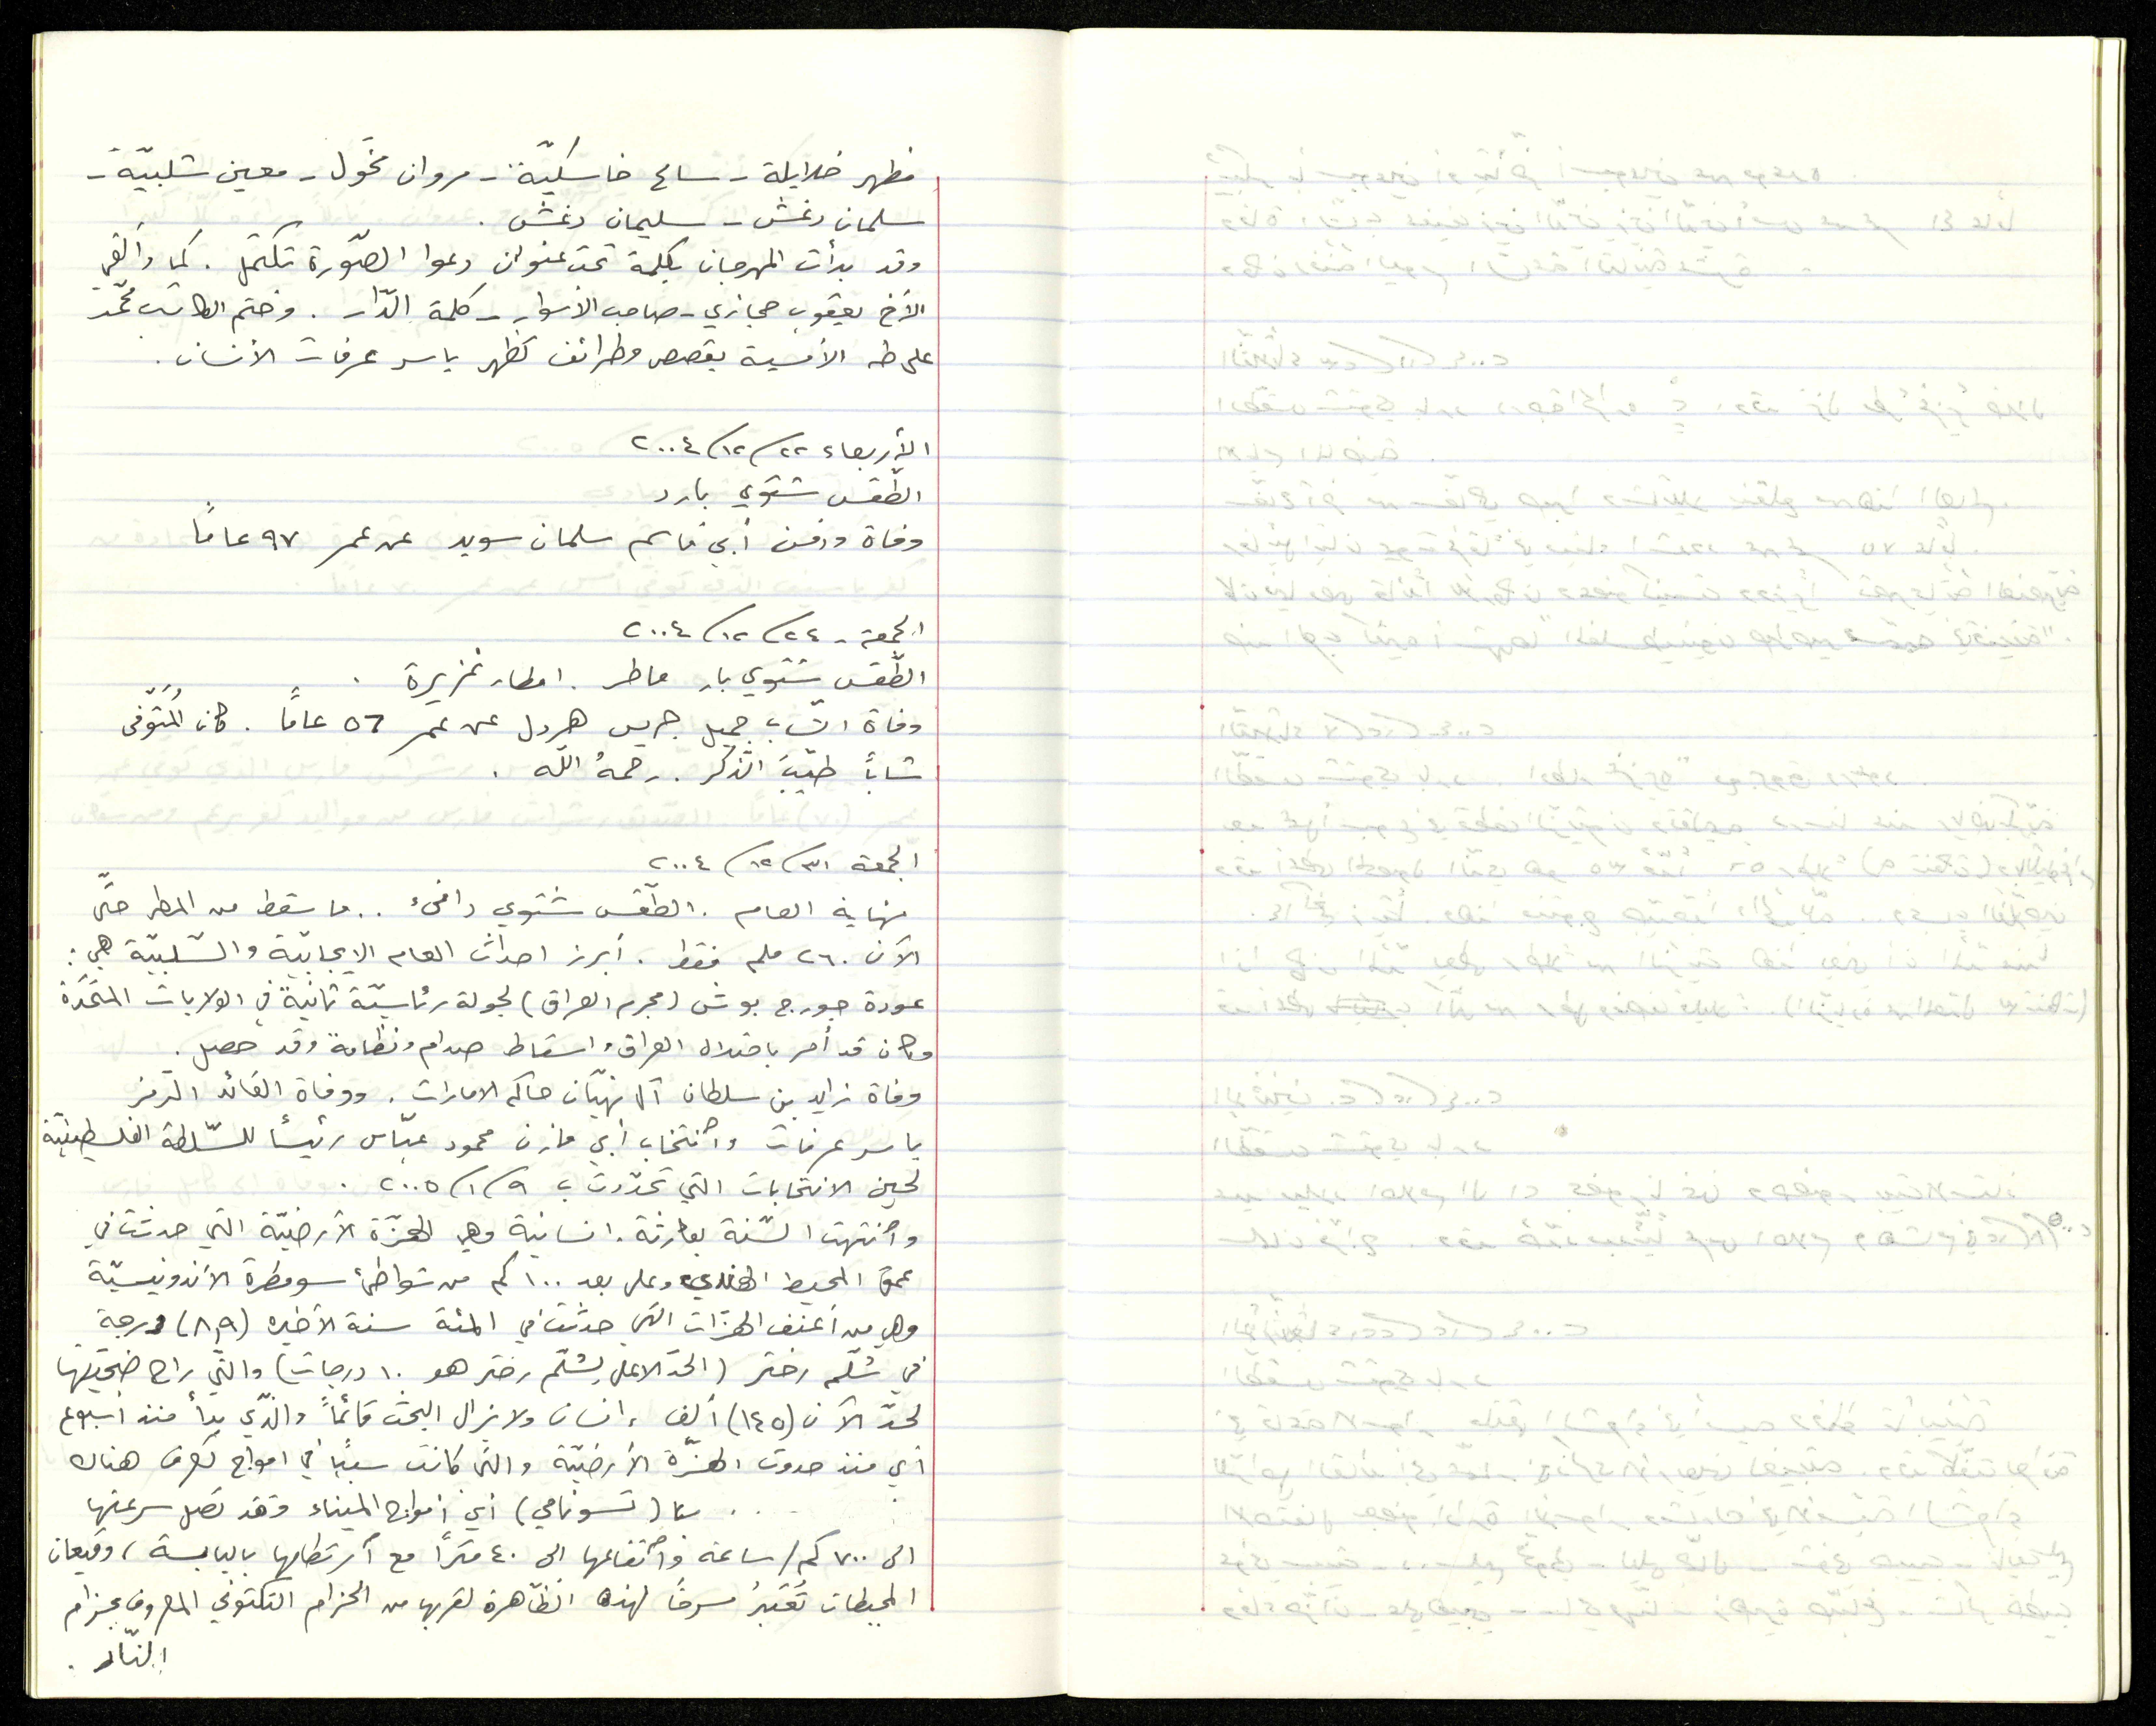 مظهر خلايلة - سامح خاسكيّة - مروان مخّول - معين شلبيّة -
سلمان دغش - سليمان دغش .
وقد بدأت المهرجان بكلمة تحت عنوان دعوا الصّورة تكتمل . كما وألقى
الأخ يعقوب حجازي - صاحب الأسوار - كلمة الدّار . وختم الكاتب محمّد
علي طه الأمسية بقصص وطرائف تظهر ياسر عرفات الأنسان .
الأربعاء ٢٢/١٢/٢٠٠٤
الطّقس شتوي بارد
وفاة ودفن أبي قاسم سلمان سويد عن عمر ٩٧ عامًا
الجمعة - ٢٤/١٢/٢٠٠٤
الطّقس شتوي بار ماطر . امطار غزيرة .
وفاة الشّاب جميل جريس هردل عن عمر ٥٦ عامًا . كان المُتَوّفى
شابًا طيّبَ الذّكر . رحمهُ اللّه .
الجمعة ٣١/١٢/٢٠٠٤
نهاية العام . الطّقس شتوي دافىء .. ما سقط من المطر حتّى
الآن ٢٦٠ ملم فقط . أبرز احداث العام الايجابيّة والسّلبيّة هي :
عودة جورج بوش (مجرم العراق) لجولة رئاسيّة ثانيةً في الولايات المتّحدة
وكان قد أمر باحتلال العراق واسقاط صدام ونظامهُ وقد حصل .
وفاة زايد بن سلطان آل نهيّان حاكم الامارات . ووفاة القائد الرّمز
ياسر عرفات وانتخاب أبي مازن محمود عبّاس رئيسًا للسّلطة الفلسطينيّة
لحين الانتخابات التي تحدّدت ب ٩/١/٢٠٠٥ .
وانتهت السّنة بكارثة انسانية وهي الهزّة الأرضيّة التي حدثت في
عمق المحيط الهندي وعلى بعد ١٠٠ كم من شواطئ سومطرة الأندونيسيّة
وهي من أعنف الهزّات التي حدثت في المئة سنة الأخيره (٨,٩) درجة
في سُلّم رختر (الحدّ الاعلى لسُلّم رختر هو ١٠ درجات) والتّي راح ضحيّتها
لحدّ الآن (١٤٥) ألف انسان ولا يزال البحث قائمًا والذّي بدأ منذ اسبوع
أي منذ حدوث الهزّة الأرضيّة والتّي كانت سببًا في امواج تعرف هناك
بـ (تسونامي) أي أمواج الميناء وقد تصل سرعتها
الى ٧٠٠ كم/ساعة وارتفاعها الى ٤٠ مترًا مع ارتطامها باليابسة ، وقيعان
المحيطات تُعتبرُ مسرحًا لهذه الظّاهرة لقربها من الحزام التكتوني المعروف بحزام
النّار .